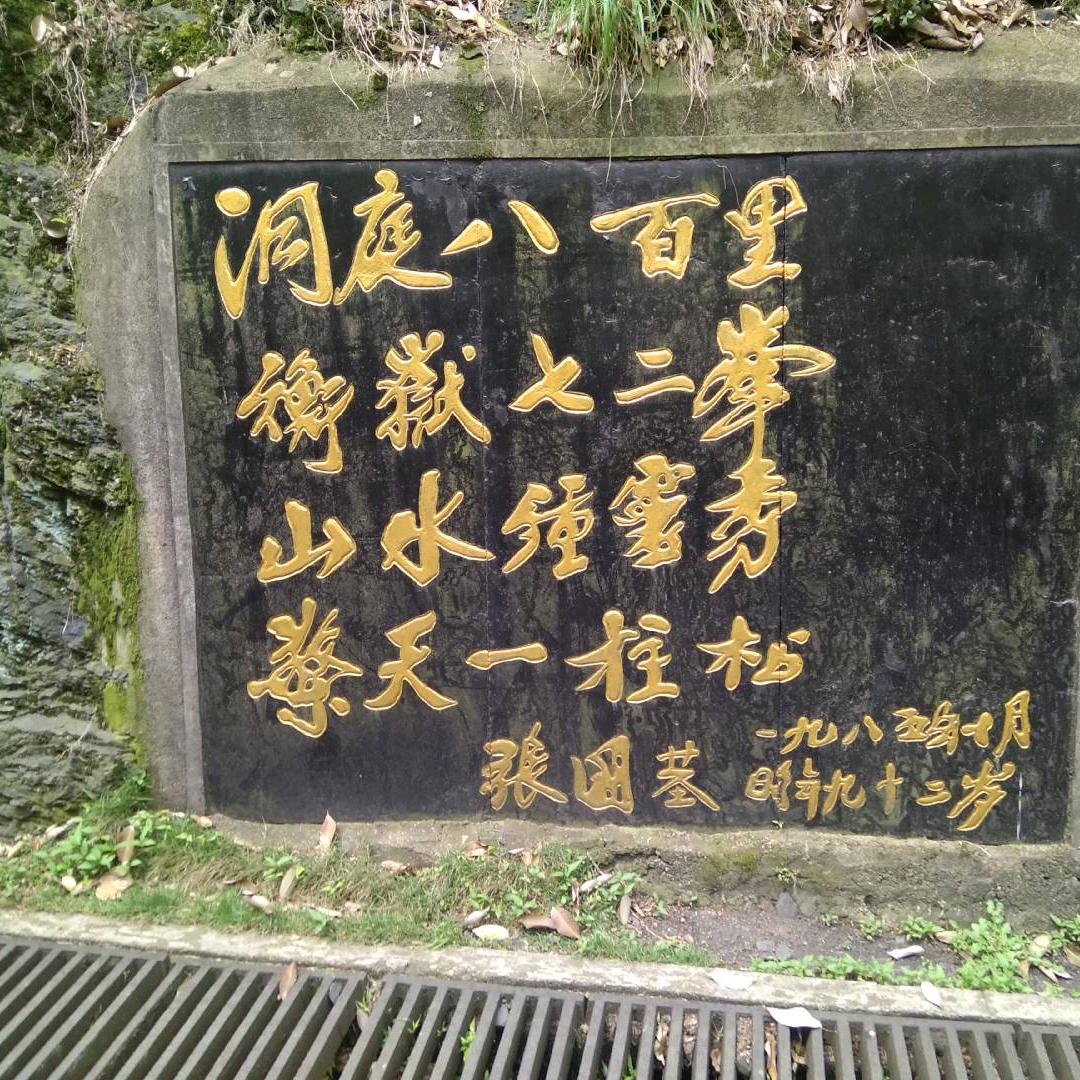 洞庭八百里
衡嶽七二峯
山水鍾靈秀
擎天一柱松
張國基
一九八五年七月
时年九十二岁